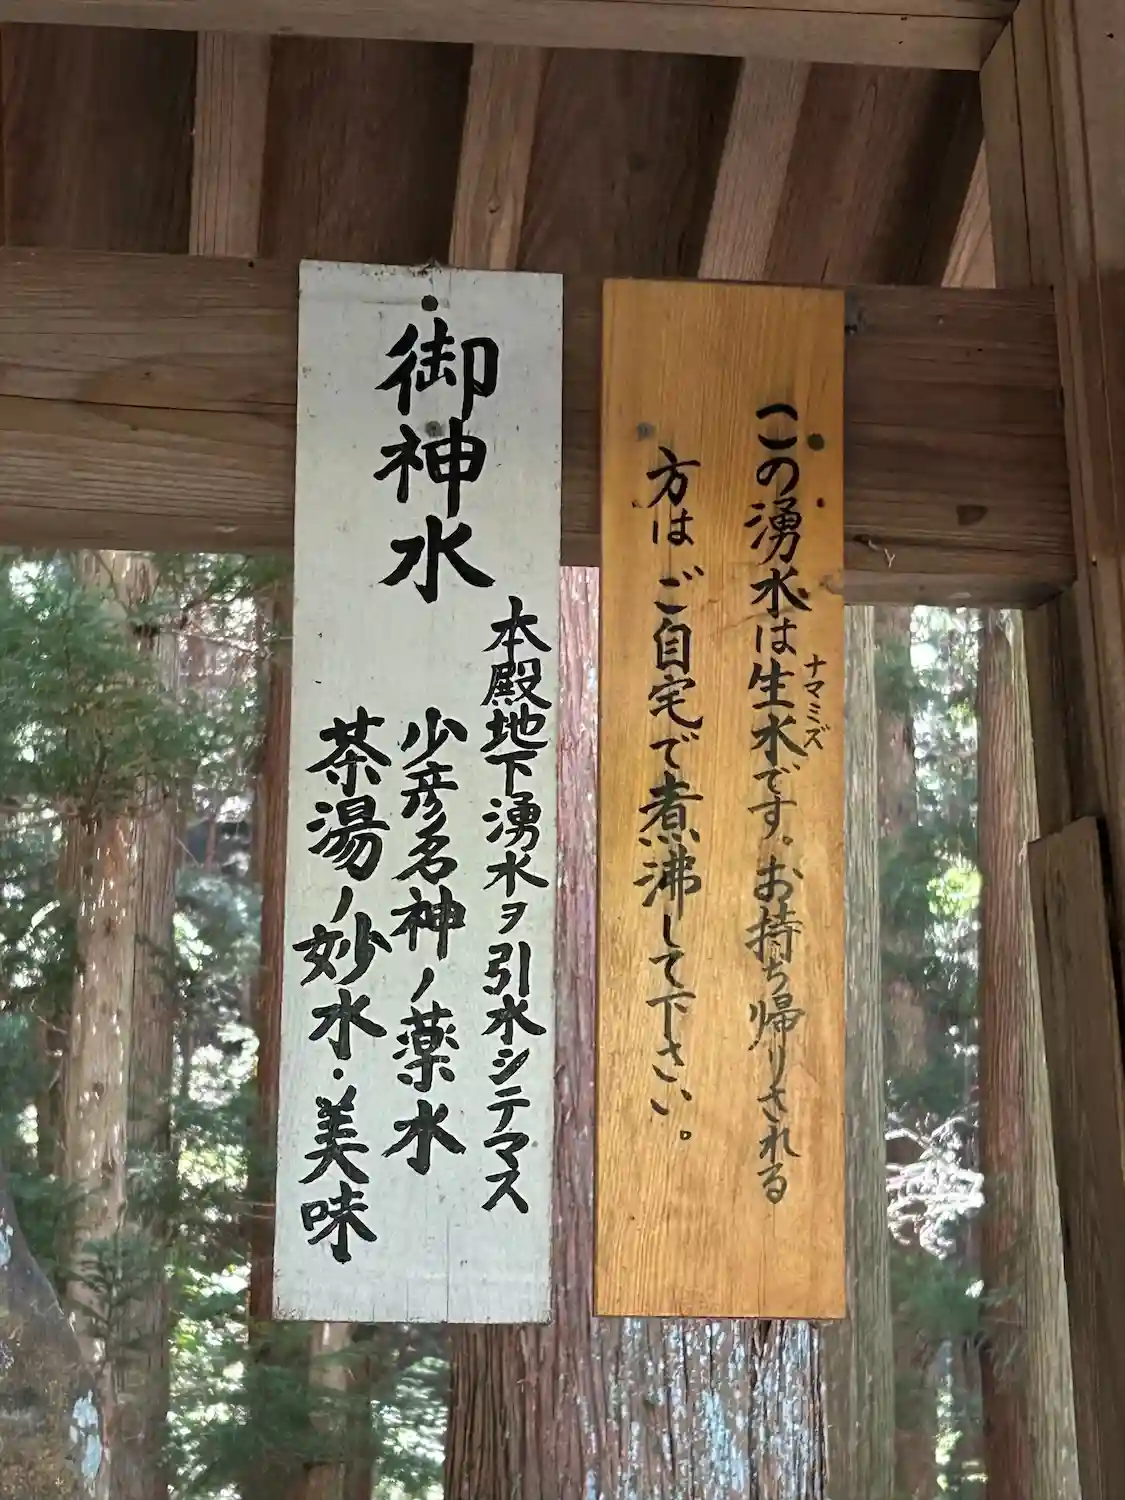 この湧水は生水です。お持ち帰りされる
ナマミズ
方はご自宅で煮沸して下さい。
・御神水
本殿地下湧水ヲ引水シテマス
少彦名神ノ薬水
茶湯ノ妙水・美味